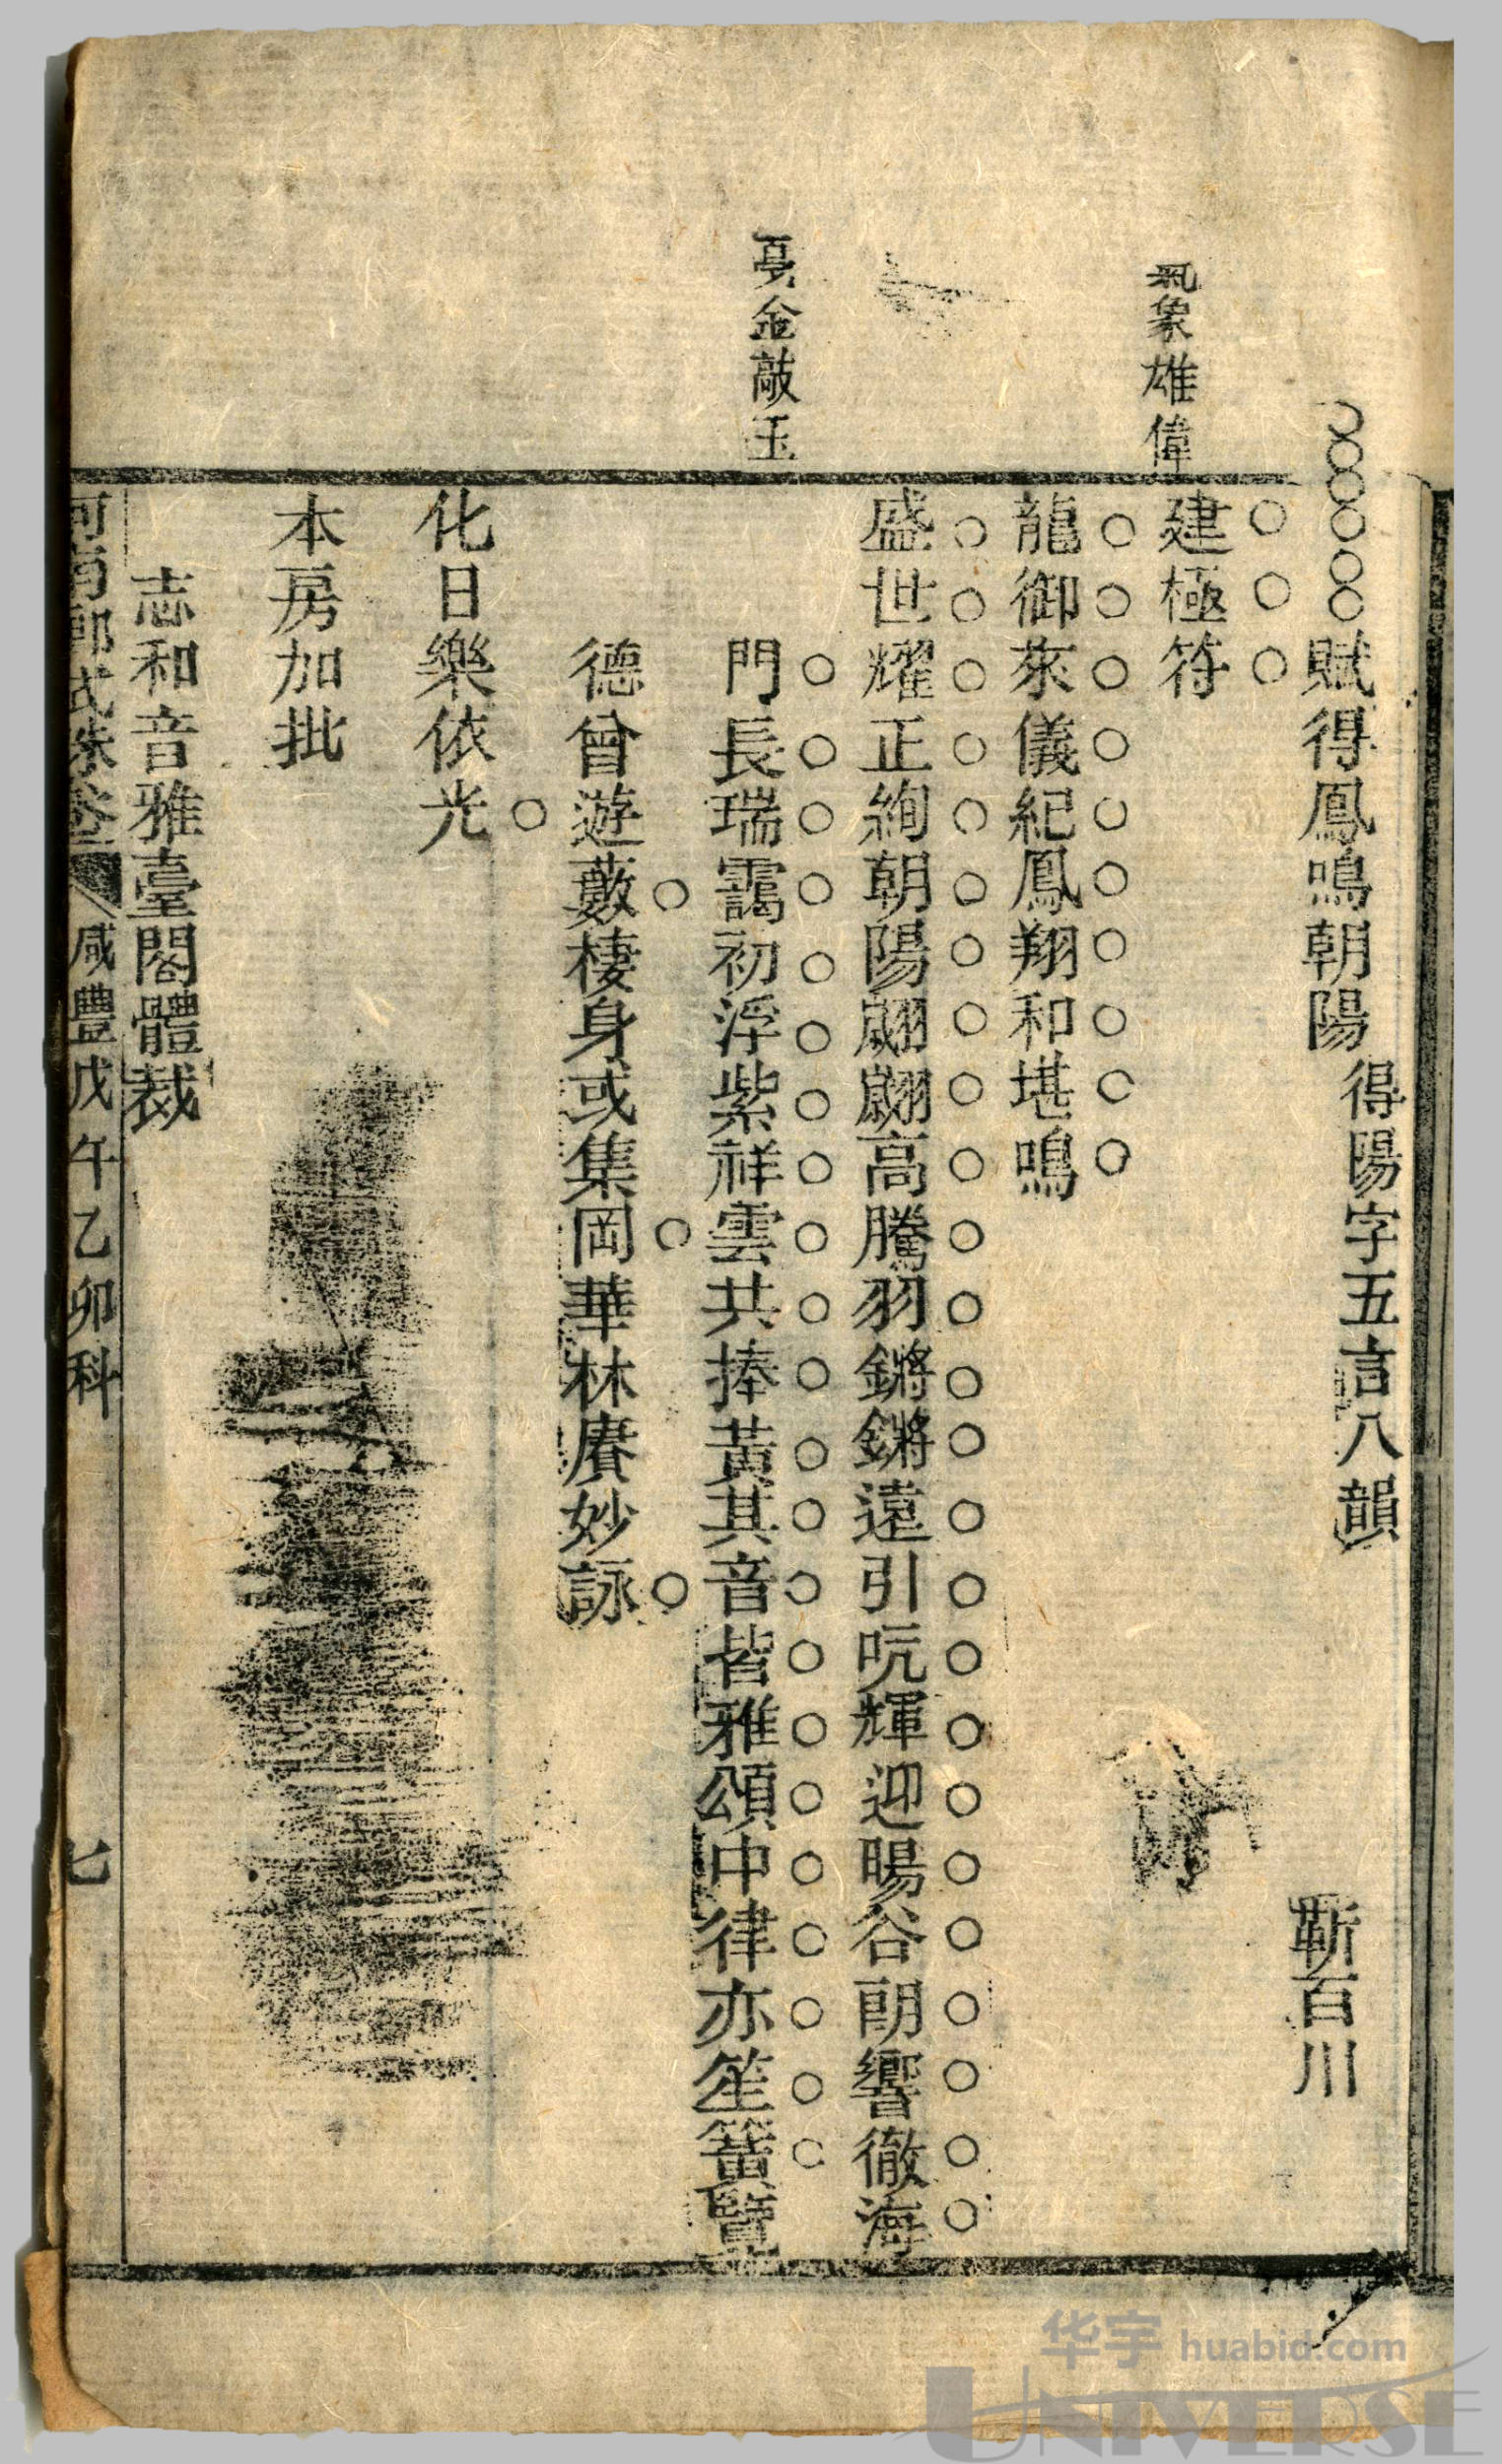 賦得鳳鳴朝陽 得陽字五言八韻 靳百川
氣象雄偉
建極符
龍御來儀紀鳳翔和堪鳴
盛世耀正絢朝陽翽翽高騰羽鏘鏘遠引吭輝迎暘谷朗響徹海
戞金敲玉
門長瑞靄初浮紫祥雲共捧黃其音皆雅頌中律亦笙簧覽
德曾遊藪棲身或集岡華林賡妙詠
化日樂依光
本房加批
志和音雅臺閣體裁
河南鄉試硃卷 咸豐戊午乙卯科 七
华宇 huabid.com
UNIVERSE